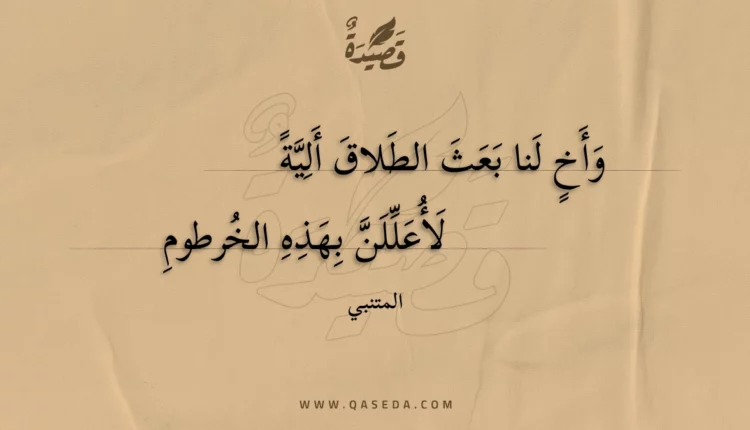 قَصِيْدَةٌ
وَأَخٍ لَنا بَعَثَ الطَلاقَ أَلِيَّةً
لَأُعَلِّلَنَّ بِهَذِهِ الخُرطومِ
المتنبي
WWW.QASEDA.COM